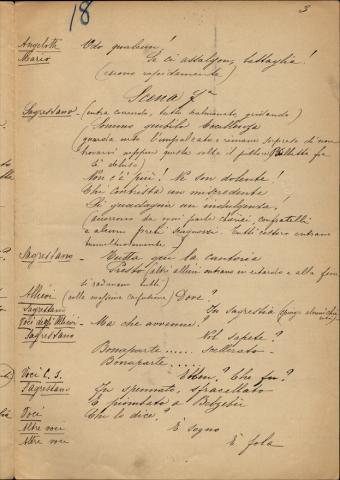 18
3
Angelotti Odo qualcun!
Mario Se ci assalgon, battaglia!
(escono rapidamente)
Scena 7a
Sagrestano (entra correndo, tutto trafelato, gridando)
Sommo giubilo Eccellenza
guarda verso l'impalcato e rimane sorpreso di non
trovarvi neppure questa volta il pittore
È deluso)
Non c'è più! Ne son dolente!
Chi contrista un miscredente
Si guadagna un'indulgenza,
(accorrono da ogni parte chierici confratelli
e alunni Tutti costoro entrano
tumultuosamente)
Sagrestano - Tutta qui la cantoria
Presto (altri allievi entrano in ritardo e alla fine
si radunano tutti)
Allievi (colla massima confusione) Dove?
Sagrestano In sagrestia (spinge alcuni chierici)
Voci degli Allievi - Ma che avvenne?
Sagrestano Nol sapete?
Bonaparte..... scellerato -
Bonaparte......
Voci C. S. Ebben? Che fu?
Sagrestano In spennato, sfracellato
È piombato a Belzebù
Voci Chi lo dice?
Altre voci È sogno
Altre voci È fola